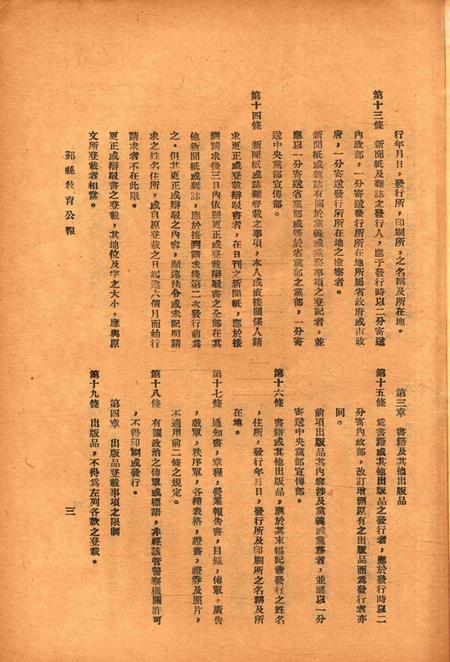 行年月日，發行所，印刷所，之名稱及所在地。
第十三條　新聞紙及雜誌之發行人，應于發行時以二分寄送
內政部，一分寄送發行所所在地所屬省政府或市政
府，一分寄送發行所所在地之檢察者。
新聞紙或雜誌有關於黨義或黨務事項之登記者，並
應以一分寄送省黨部或等於省黨部之黨部，一分寄
送中央黨部宣傳部。
第十四條　新聞紙或誌雜登載之事項，本人或直接關係人請
求更正或登載辯駁書者，在日刊之新聞紙，應於接
到請求後三日內依照更正或登載辯駁書之全部在其
他新聞紙或雜誌，應於接到請求後第二次發行前為
之。但其更正或辯駁之內容，顯違法令或未記明請
求之姓名住所，或自原登載之日起逾六個月而始行
請求者不在此限。
更正或辯駁書之登載，其地位及字之大小，應與原
文所登載者相當。
鄞縣教育公報
第三章　書籍及其他出版品
第十五條　為書籍或其他出版品之發行者，應於發行時以二
分寄內政部，改訂增刪原有之出版品而為發行者亦
同。
前項出版品其內容涉及黨義或黨務者，並應以一分
寄送中央黨部宣傳部。
第十六條　書籍或其他出版品，應於其末幅記載發行之姓名
，住所，發行年月日，發行所及印刷所之名稱及所
在地。
第十七條　通知書，章程，營業報告書，目錄，傳單，廣告
，戲單，秩序單，各種表格，證書，證券及照片，
不適用前二條之規定。
第十八條　有關政治之傳單或標語，非經該管警察機關許可
，不得印刷或發行。
第四章　出版品登載事項之限制
第十九條　出版品，不得為左列各款之登載。
三